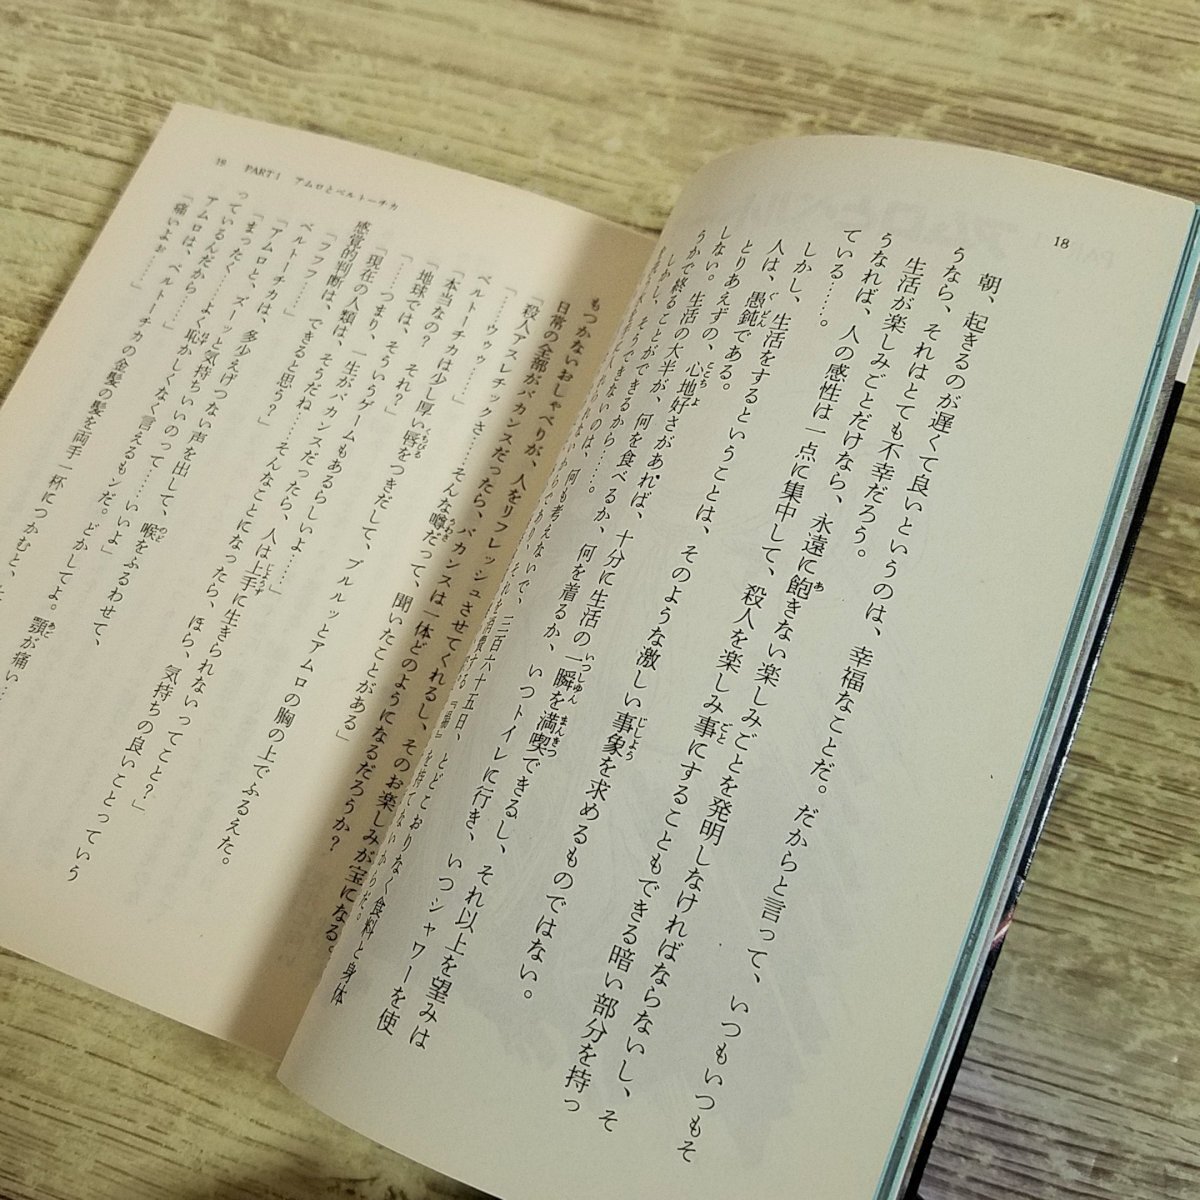 18
朝、起きるのが遅くて良いというのは、幸福なことだ。だからと言って、いつもいつもそ
うなら、それはとても不幸だろう。
生活が楽しみごとだけなら、永遠に飽きない楽しみごとを発明しなければならないし、そ
うなれば、人の感性は一点に集中して、殺人を楽しみ事にすることもできる暗い部分を持っ
ている……。
しかし、生活をするということは、そのような激しい事象を求めるものではない。
人は、愚鈍である。
とりあえずの、心地好さがあれば、十分に生活の一瞬を満喫できるし、それ以上を望みは
しない。生活の大半が、何を食べるか、何を着るか、いつトイレに行き、いつシャワーを使
うかで終る
しかし、
19 PART1 アムロとベルトーチカ
もつかないおしゃべりが、人をリフレッシュさせてくれるし、そのお楽しみが宝になる。
日常の全部がバカンスだったら、バカンスは一体どのようになるだろうか?
「殺人アスレチックさ……そんな噂だって、聞いたことがある」
「……ウゥゥ……」
ベルトーチカは少し厚い唇をつきだして、ブルルッとアムロの胸の上でふるえた。
「本当なの? それ?」
「地球では、そういうゲームもあるらしいよ……」
「……つまり、一生がバカンスだったら、人は上手に生きられないってこと?」
「現在の人類は、そうだね……そんなことになったら、ほら、気持ちの良いことっていう
感覚的判断は、できると思う?」
「フフフ……」
ベルトーチカは、多少えげつない声を出して、喉をふるわせて、
「アムロと、ズーッと気持ちいいのって……いいよ」
「まったく、よく恥かしくなく言えるもンだ。どかしてよ。顎が痛い
っているんだから……」
アムロは、ベルトーチカの金髪の髪を両手一杯につかむと、
「痛いよぉ……」